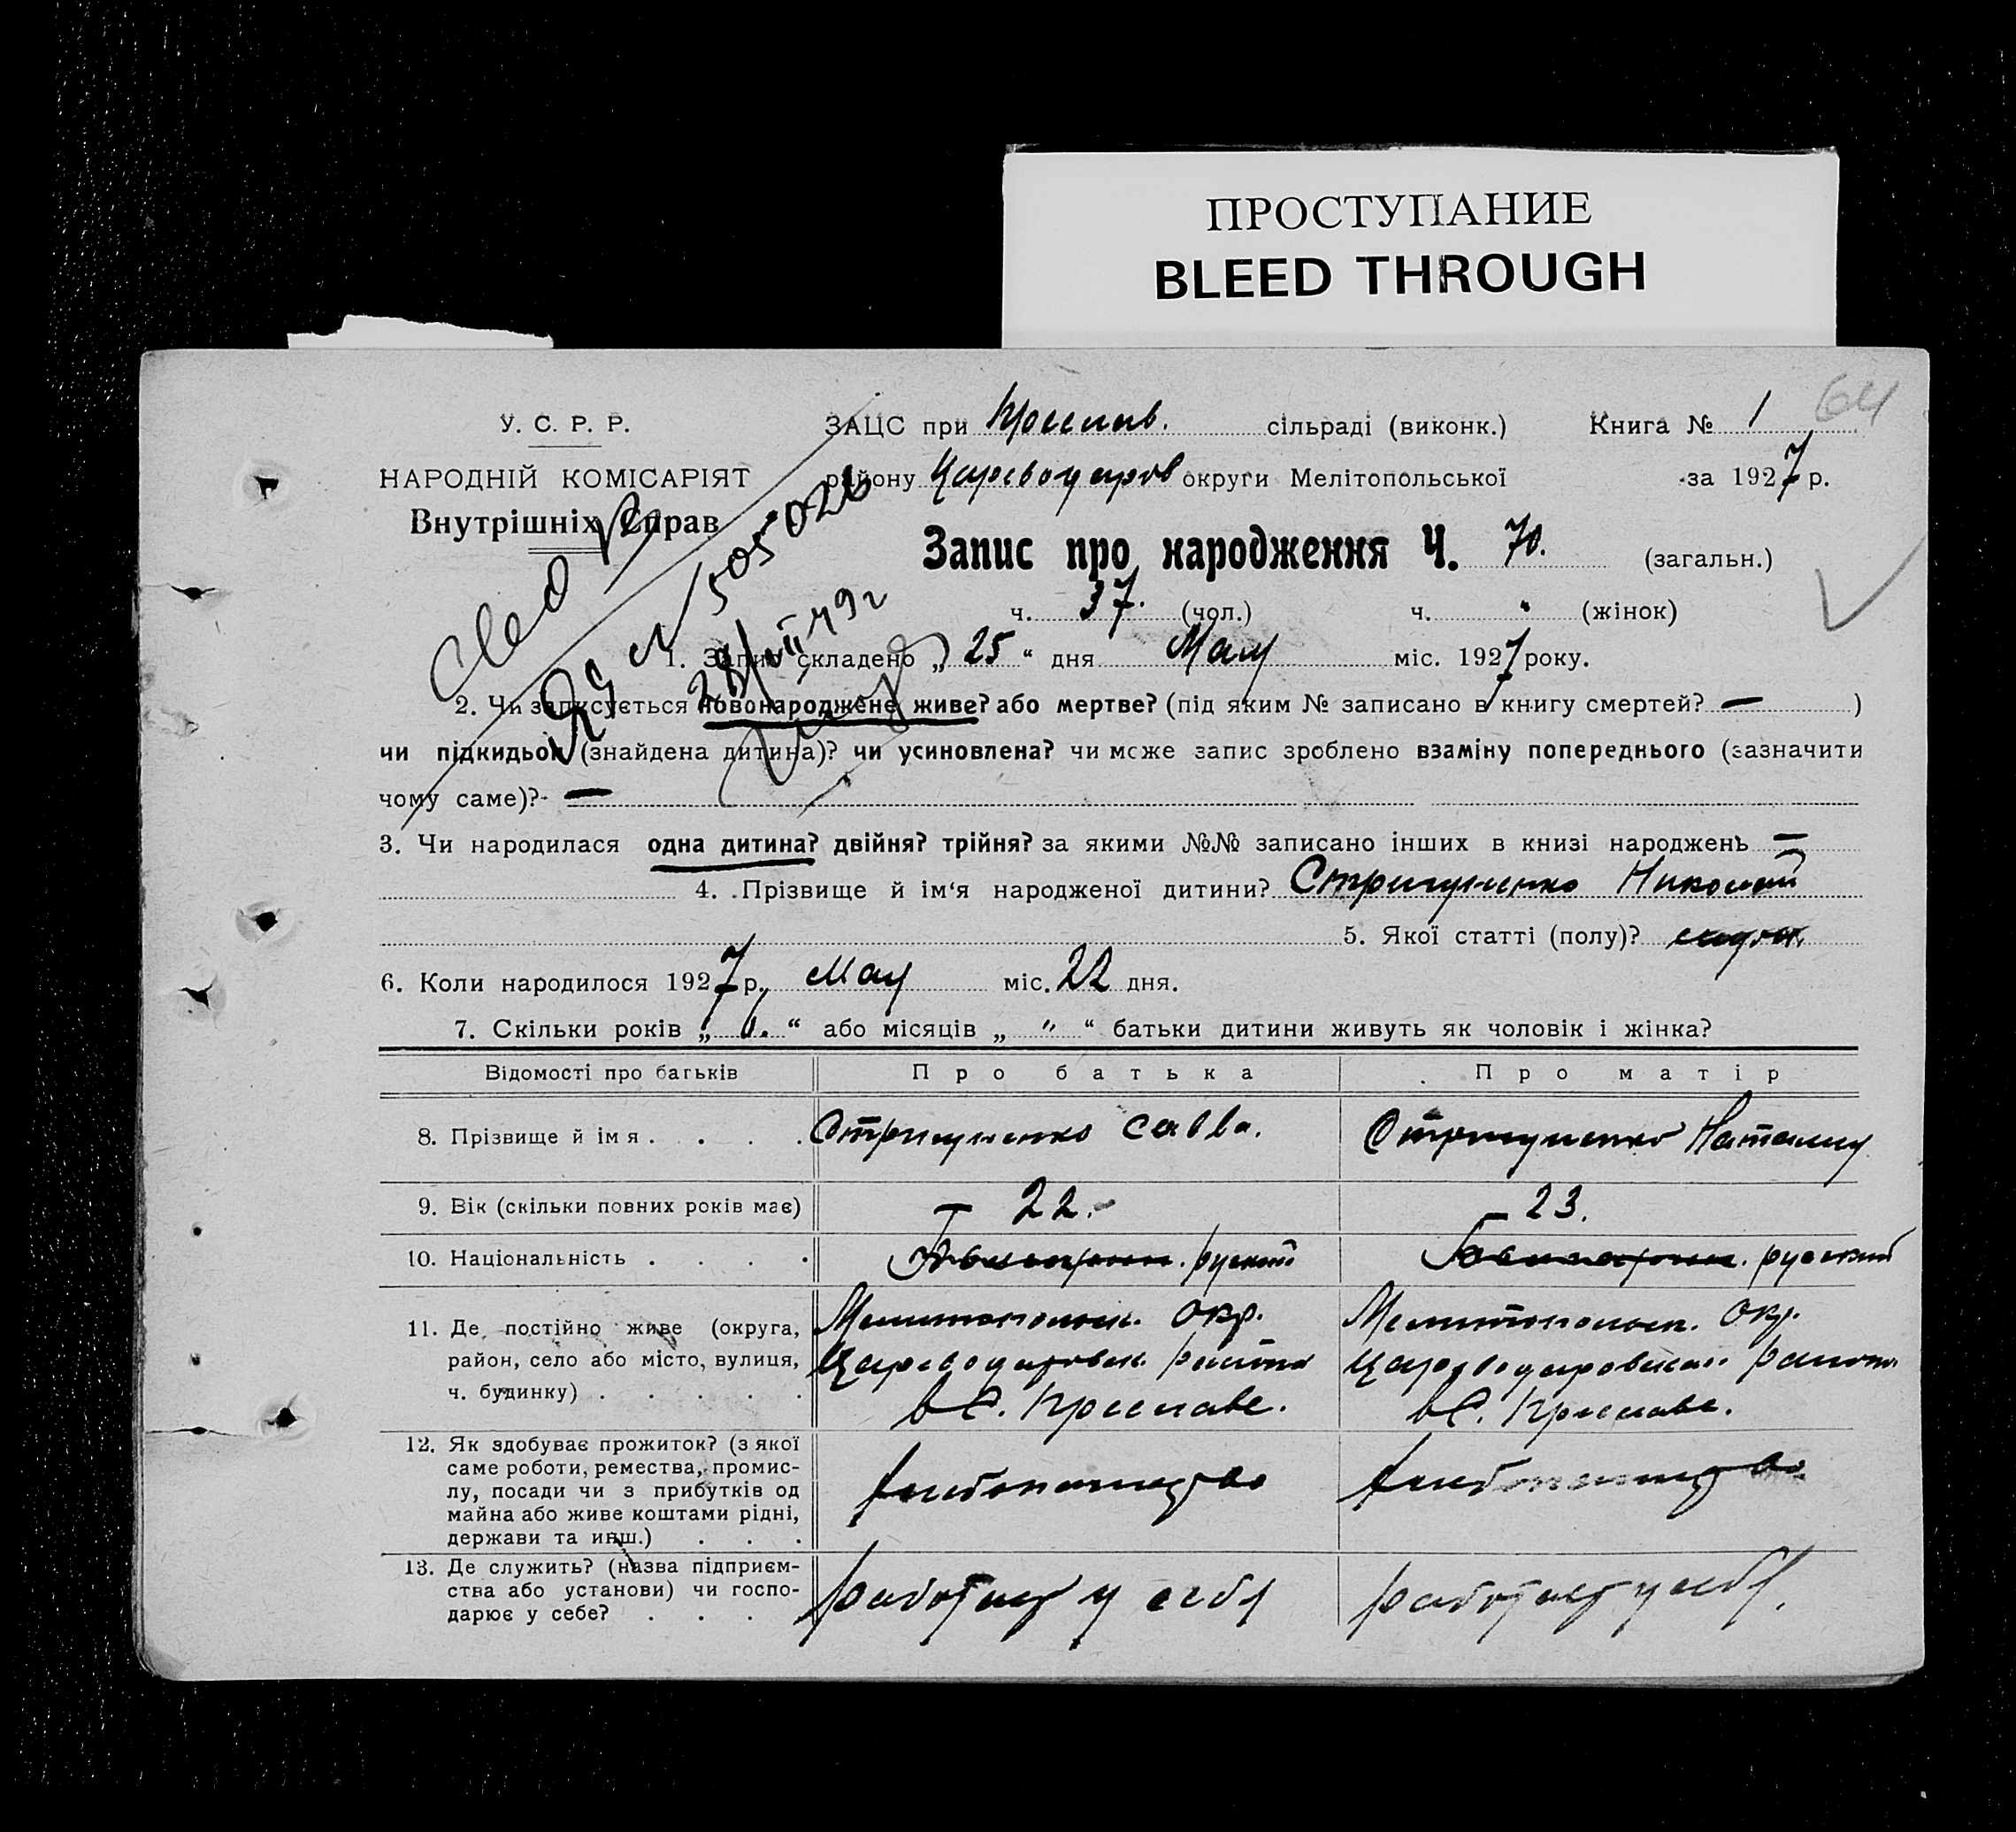 ПРОСТУПАНИЕ
BLEED THROUGH
64
У. С. Р. Р.
НАРОДНІЙ КОМІСАРІЯТ
Внутрішніх Справ
ЗАЦС при сільраді (виконк.) Книга № 1
району Цареводаров округи Мелітопольської за 1927 р.
Запис про народження Ч. 70. (загальн.)
ч. 37. (чол.) ч. " (жінок)
505026
28/VII 49 г
1. Запис складено „ 25 “ дня Мая міс. 1927 року.
2. Чи записується новонароджене живе? або мертве? (під яким № записано в книгу смертей? — )
чи підкидьок (знайдена дитина)? чи усиновлена? чи може запис зроблено взаміну попереднього (зазначити
чому саме)? —
3. Чи народилася одна дитина? двійня? трійня? за якими №№ записано інших в книзі народжень —
4. Прізвище й ім‘я народженої дитини? Николай
5. Якої статті (полу)?
6. Коли народилося 1927 р. Мая міс. 22 дня.
7. Скільки років „ 1. “ або місяців „ " “ батьки дитини живуть як чоловік і жінка?
Відомості про батьків Про батька Про матір
8. Прізвище й імя . . . . Савва. Наталия
9. Вік (скільки повних років має) — 22. — 23.
10. Національність . . . . руский русский
11. Де постійно живе (округа, Мелитопольск. Окр. Мелитопольск. Окр.
район, село або місто, вулиця, Цареводаровск. района Цареводаровск. района
ч. будинку) . . . . . в С. в С.
12. Як здобуває прожиток? (з якої
саме роботи, ремества, промис-
лу, посади чи з прибутків од
майна або живе коштами рідні,
держави та инш.) . . . хлебопашество хлебопашество
13. Де служить? (назва підприєм-
ства або установи) чи госпо-
дарює у себе? . . . работает у себя работает у себя.